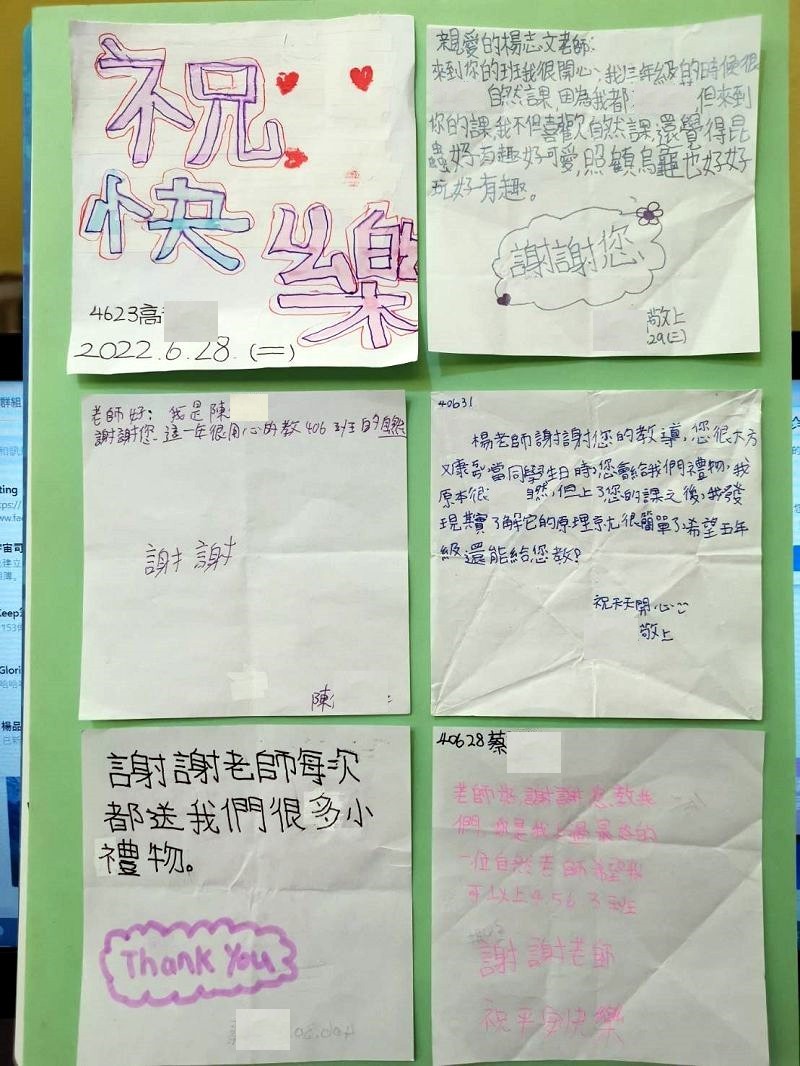 祝
快樂
4623高
2022.6.28.(二)
親愛的楊志文老師:
來到你的班我很開心、我三年級的時候很
自然課,因為我都 但來到
你的課,我不但喜歡自然課還覺得昆
蟲好有趣好可愛,照顧烏龜也好好
玩好有趣。
謝謝您
敬上
29(三)
老師好: 我是陳
謝謝您 這一年很用心的教406班的自然
謝謝
陳
40631
楊老師謝謝您的教導,您很大方
又康慨當同學生日時,您會給我們禮物,我
原本很 自然,但上了您的課之後,我發
現其實了解它的原理京尤很簡單了希望五年
級還能給您教?
祝天天開心
敬上
謝謝老師每次
都送我們很多小
禮物。
Thank You
40628蔡
老師好,謝謝您教我
們,你是我上過最好的
一位自然老師希望我
可以上4.5.6.3班
謝謝老師
祝平安快樂
群組
ting
www.fa
宇宙司
Keep
Glori
楊品